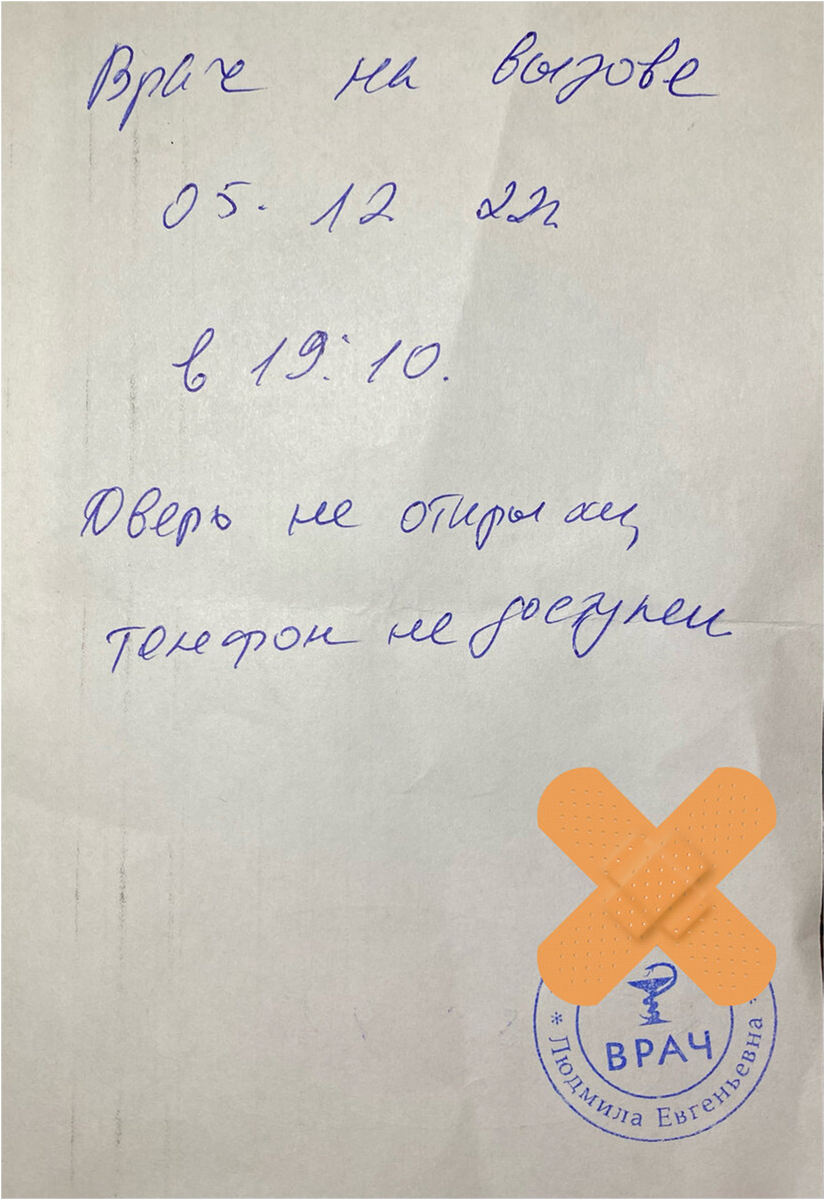 Врач на вызове
05. 12 22г
в 19:10.
Дверь не открыли,
телефон не доступен
ВРАЧ
* Людмила Евгеньевна *